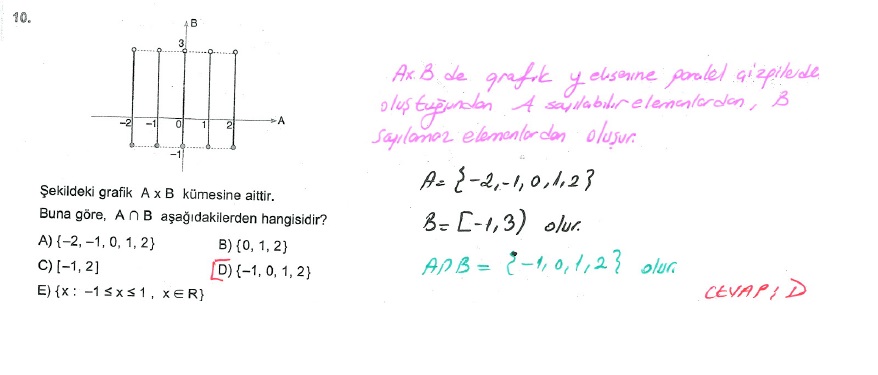 10.
B
3
-2 -1 0 1 2 A
-1
Şekildeki grafik A x B kümesine aittir.
Buna göre, A ∩ B aşağıdakilerden hangisidir?
A) {-2, -1, 0, 1, 2} B) {0, 1, 2}
C) [-1, 2] D) {-1, 0, 1, 2}
E) {x : -1 ≤ x ≤ 1 , x ∈ R}
AxB de grafik y eksenine paralel çizgilerden
oluştuğundan A sayılabilir elemanlardan, B
sayılamaz elemanlardan oluşur.
A= {-2,-1,0,1,2}
B= [-1,3) olur.
A∩B = {-1,0,1,2} olur.
CEVAP: D